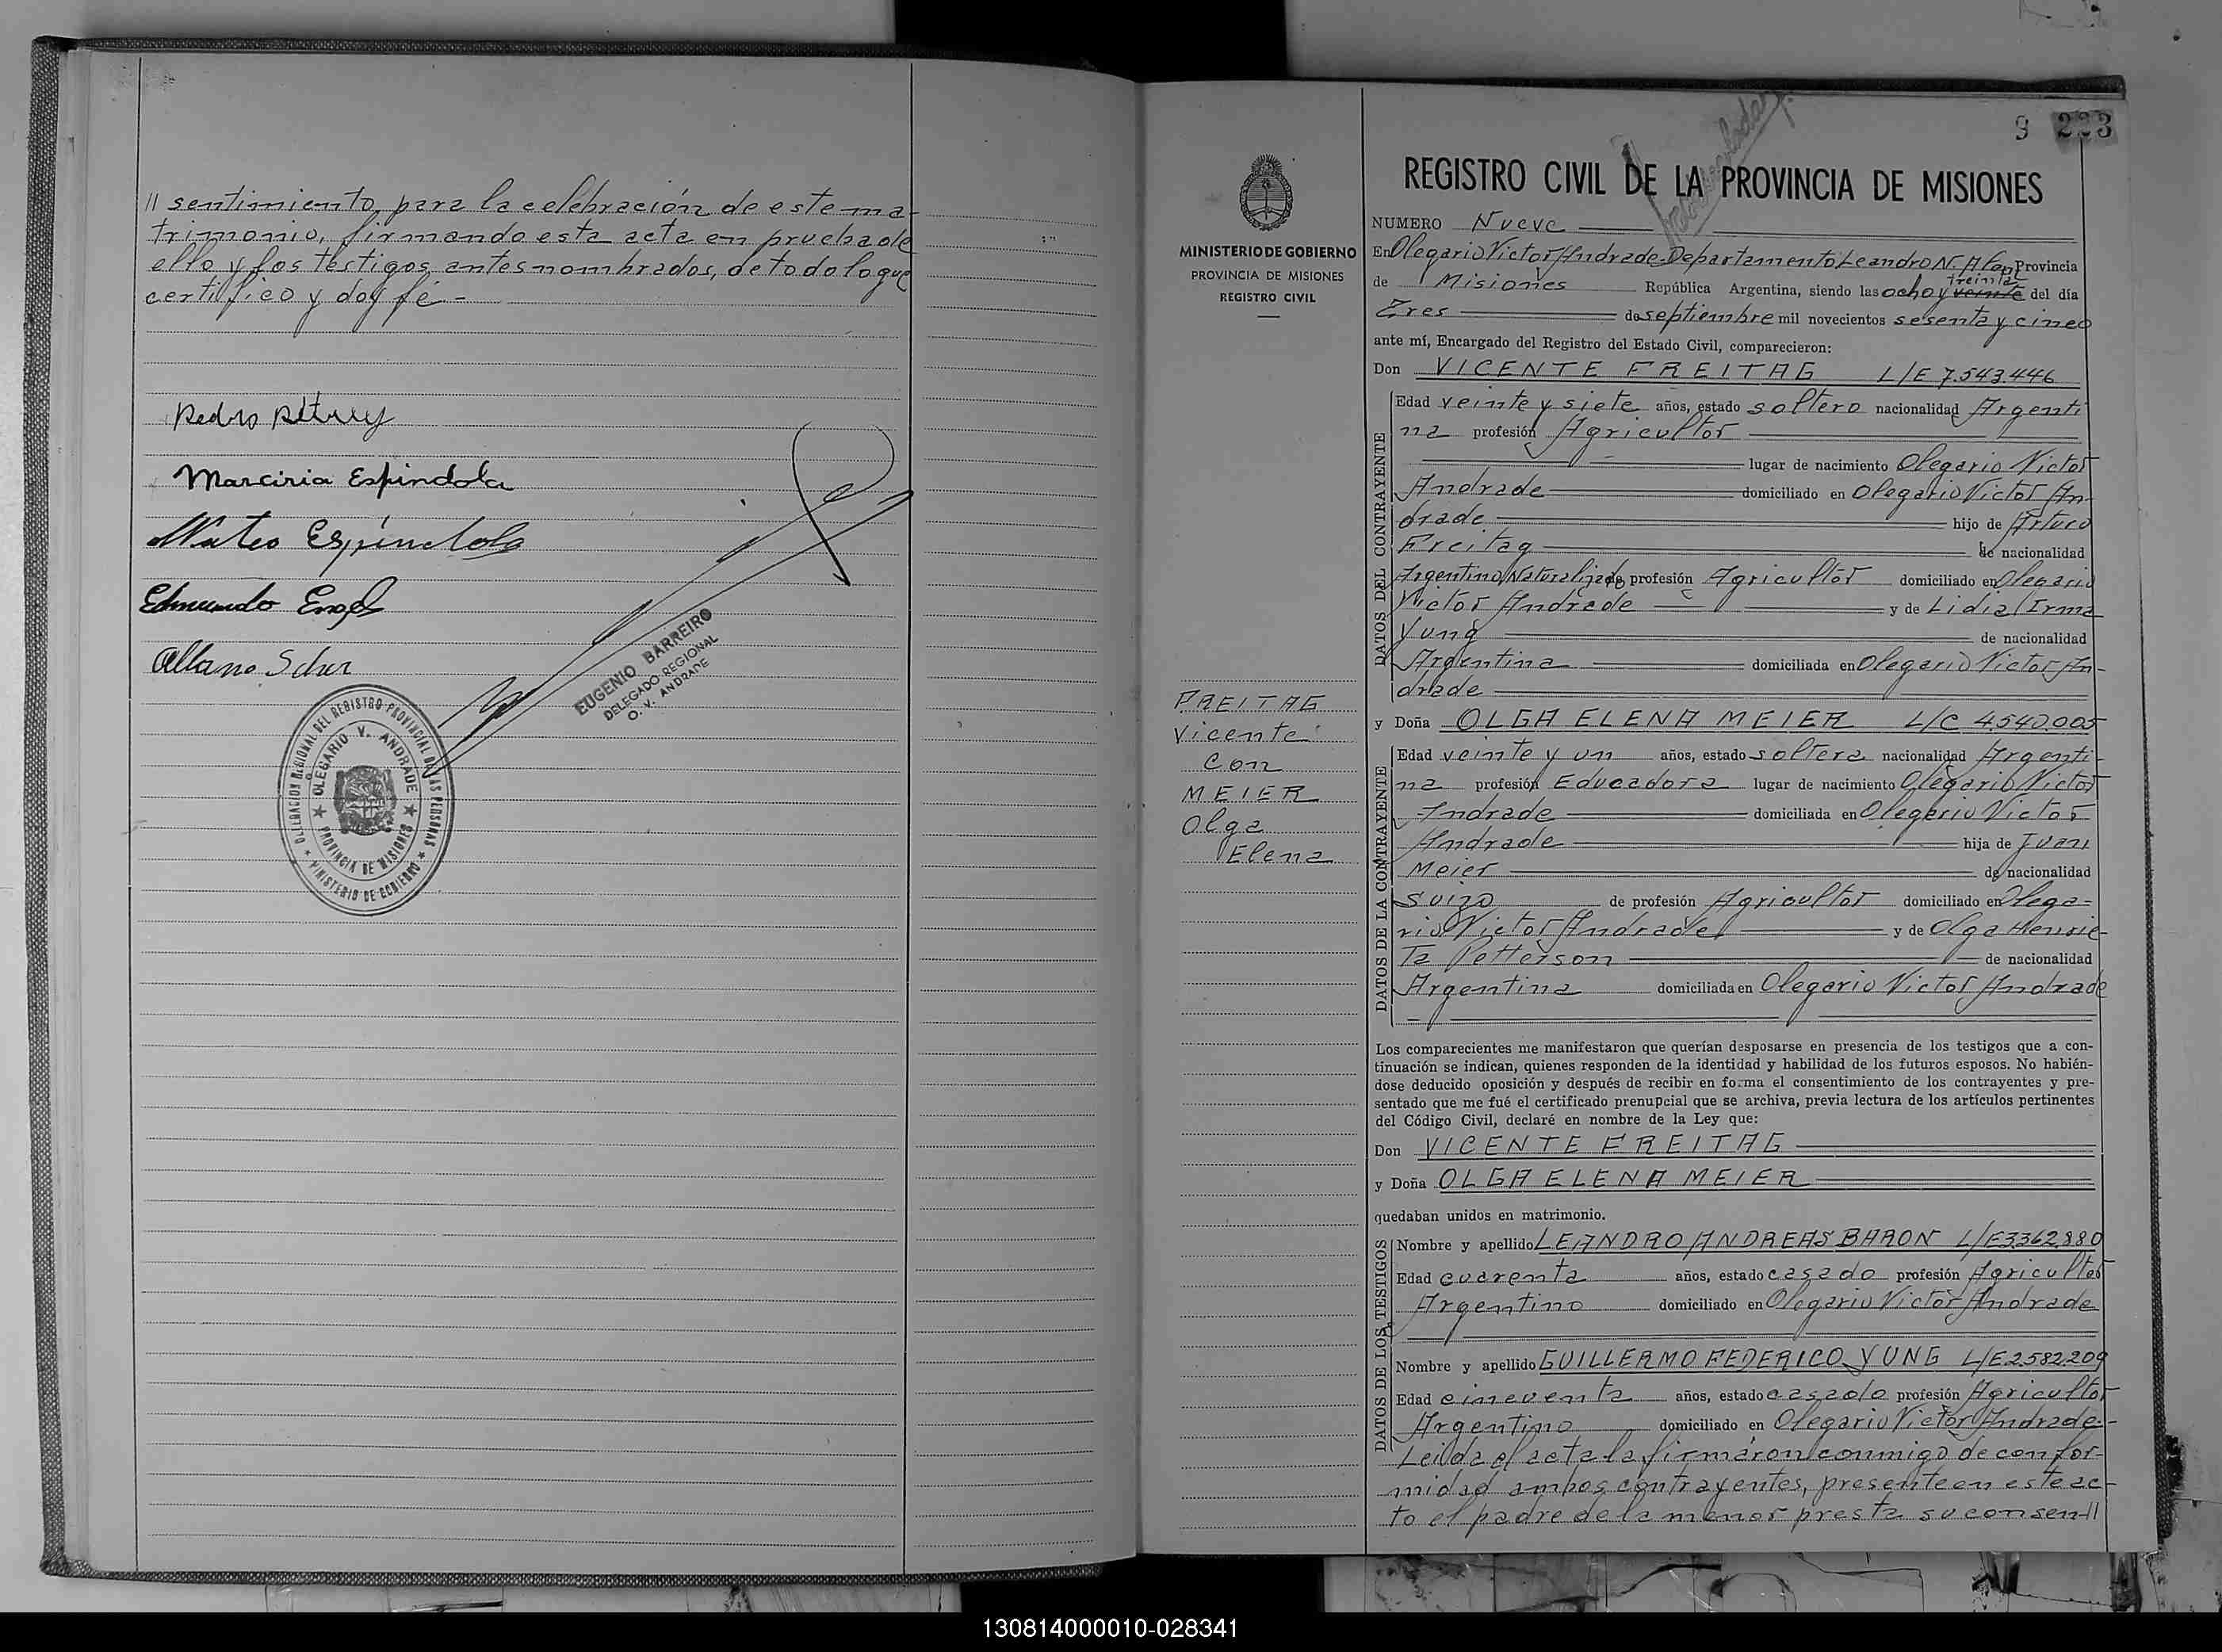 // sentimiento, para la celebración de este ma-
trimonio, firmando esta acta en prueba de
ello y los testigos antes nombrados, de todo lo que
certifico y doy fé -
Pedro
Marciria Espindola
Mateo Espindola
Edmundo Engel
Albano Scher
EUGENIO BARREIRO
DELEGADO REGIONAL
O. V. ANDRADE
DELEGACION REGIONAL DEL REGISTRO PROVINCIAL DE LAS PERSONAS
MINISTERIO DE GOBIERNO
OLEGARIO V. ANDRADE
PROVINCIA DE MISIONES
MINISTERIO DE GOBIERNO
PROVINCIA DE MISIONES
REGISTRO CIVIL
FREITAG
Vicente
con
MEIER
Olga
Elena
9 223
REGISTRO CIVIL DE LA PROVINCIA DE MISIONES
NUMERO Nueve
En Olegario Victor Andrade Departamento Leandro N. Alem Provincia
de Misiones República Argentina, siendo las ocho y veinte treinta del día
Tres de septiembre mil novecientos sesenta y cinco
ante mí, Encargado del Registro del Estado Civil, comparecieron:
Don VICENTE FREITAG L/E 7.543.446
DATOS DEL CONTRAYENTE
Edad veinte y siete años, estado soltero nacionalidad Argenti
na profesión Agricultor
lugar de nacimiento Olegario Victor
Andrade domiciliado en Olegario Victor An-
drade hijo de Arturo
Freitag de nacionalidad
Argentino Naturalizado profesión Agricultor domiciliado en Olegario
Victor Andrade y de Lidia Irma
Yung de nacionalidad
Argentina domiciliada en Olegario Victor An-
drade
y Doña OLGA ELENA MEIER L/C 4.540.005
DATOS DE LA CONTRAYENTE
Edad veinte y un años, estado soltera nacionalidad Argenti-
na profesión Educadora lugar de nacimiento Olegario Victor
Andrade domiciliada en Olegario Victor
Andrade hija de Juan
Meier de nacionalidad
Suizo de profesión Agricultor domiciliado en Olega-
rio Victor Andrade y de Olga Henrie-
ta Petterson de nacionalidad
Argentina domiciliada en Olegario Victor Andrade
Los comparecientes me manifestaron que querían desposarse en presencia de los testigos que a con-
tinuación se indican, quienes responden de la identidad y habilidad de los futuros esposos. No habién-
dose deducido oposición y después de recibir en forma el consentimiento de los contrayentes y pre-
sentado que me fué el certificado prenupcial que se archiva, previa lectura de los artículos pertinentes
del Código Civil, declaré en nombre de la Ley que:
Don VICENTE FREITAG
y Doña OLGA ELENA MEIER
quedaban unidos en matrimonio.
DATOS DE LOS TESTIGOS
Nombre y apellido LEANDRO ANDREAS BARON L/E 3.362.880
Edad cuarenta años, estado casado profesión Agricultor
Argentino domiciliado en Olegario Victor Andrade
Nombre y apellido GUILLERMO FEDERICO YUNG L/E 2.582.209
Edad cincuenta años, estado casado profesión Agricultor
Argentino domiciliado en Olegario Victor Andrade -
Leida el acta la firmaron conmigo de confor-
midad ambos contrayentes, presente en este ac-
to el padre de la menor presta su consen//
130814000010-028341